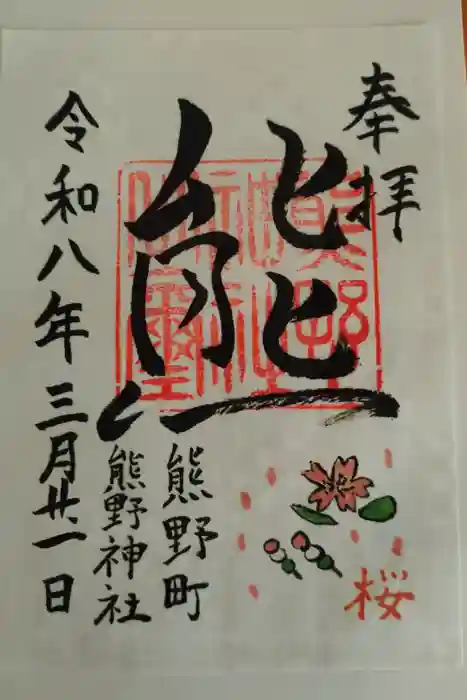 奉拝
熊
熊野町
熊野神社
令和八年三月廿一日
桜